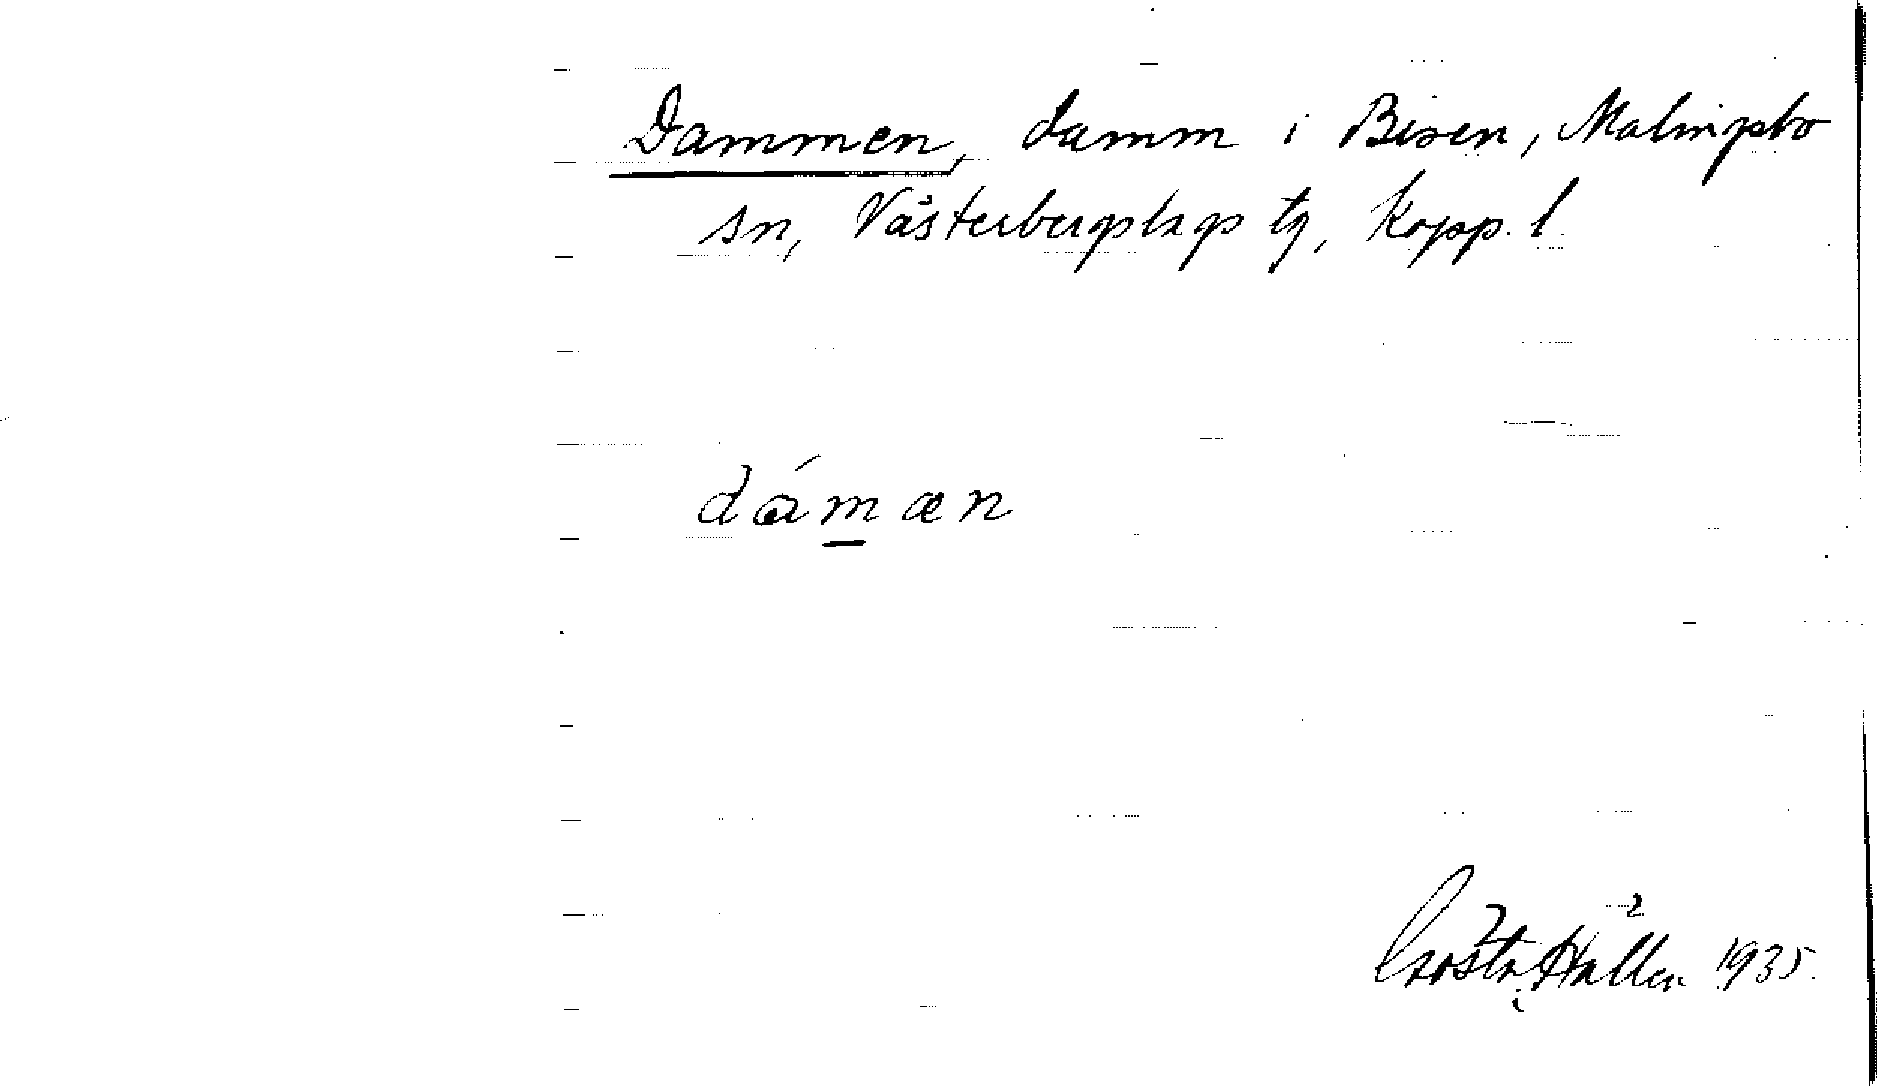 Dammen, damm i Bisen, Malingsbo
sn, Västerbergslags tg, Kopp. l.
dámæn
Gösta Hallen 1935.